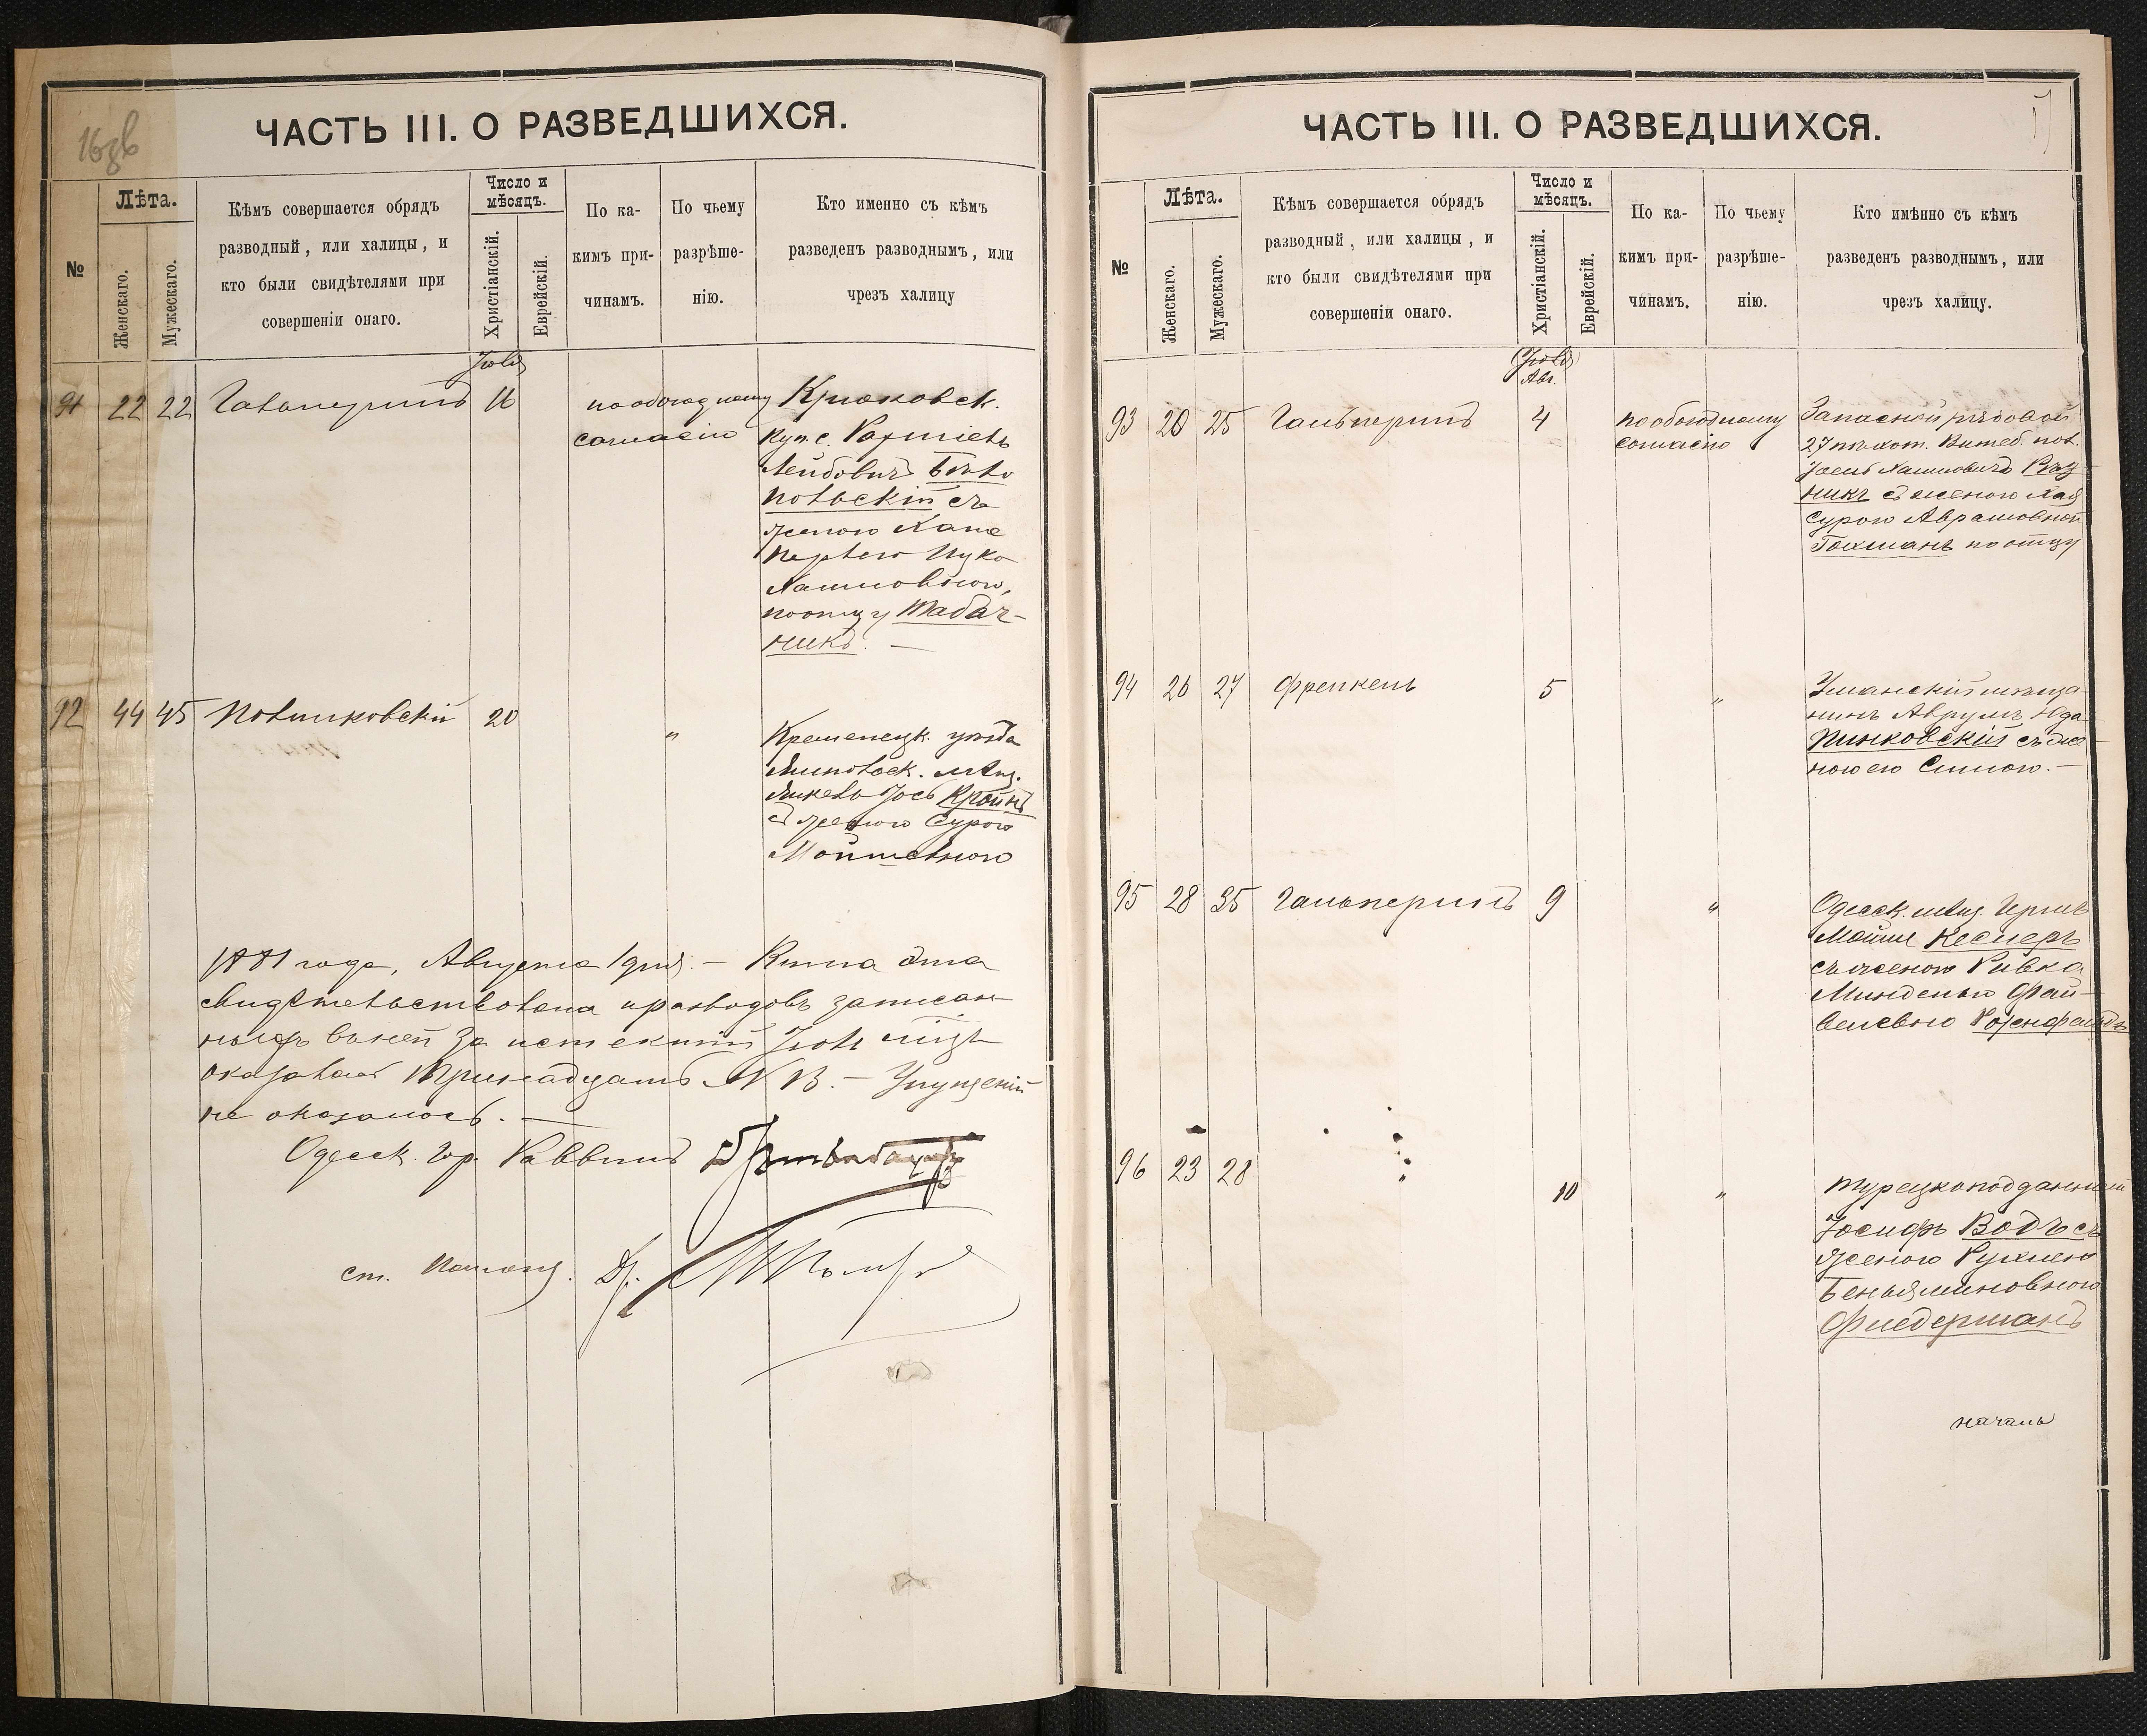 16 зв
ЧАСТЬ III. О РАЗВЕДШИХСЯ.
№
Лѣта.
Женскаго.
Мужескаго.
Кѣмъ совершается обрядъ
разводный, или халицы, и
кто были свидѣтелями при
совершеніи онаго.
Число и
мѣсяцъ.
Христіанскій.
Еврейскій.
По ка-
кимъ при-
чинамъ.
По чьему
разрѣше-
нію.
Кто именно съ кѣмъ
разведенъ разводнымъ, или
чрезъ халицу
Іюля
91 22 22 Гальперинъ 16 по обоюдному
согласію
Крюковск.
куп. с.
Лейбовичъ Бѣло
польскій съ
женою Хане
Хаимовною,
по отцу Табач-
никъ. —
92 44 45 20 "
Кременецк. уѣзда
Іось Кройнъ
съ женою Сурою
Мошковною
1881 года, Августа 1 дня. — Книга эта
свидѣтельствована и разводовъ записан
ныхъ въ ней за истекшій Іюль мѣцъ
оказалось тринадцать N 13. — Упущеній
не оказалось. —
Одесск. гор. Раввинъ
ст. Помощ. Др.
ЧАСТЬ III. О РАЗВЕДШИХСЯ.
№
Лѣта.
Женскаго.
Мужескаго.
Кѣмъ совершается обрядъ
разводный, или халицы, и
кто были свидѣтелями при
совершеніи онаго.
Число и
мѣсяцъ.
Христіанскій.
Еврейскій.
По ка-
кимъ при-
чинамъ.
По чьему
разрѣше-
нію.
Кто имѣнно съ кѣмъ
разведенъ разводнымъ, или
чрезъ халицу.
(Іюля)
Авг.
93 20 25 Гальперинъ 4 по обоюдному
согласію
Запасной рядовой
27 пѣхот. Витеб. пол.
Іосъ Хаимовичъ
никъ съ женою Хая
Сурою Аврамовной
Гохманъ по отцу
94 26 27 Френкель 5 "
Уманскій мѣща
нинъ Аврумъ Юда
Пинковскій съ же
ною его Симою. —
95 28 35 Гальперинъ 9 "
Одесск. мѣщ. Герш
Мойше Кеслеръ
съ женою Ривка
Минделью Фай-
велевною Розенфельдъ
96 23 28 " 10 "
Турецкоподданный
Іосифъ Водъ съ
женою Рухлею
Беньяминовною
Фидерманъ
началъ